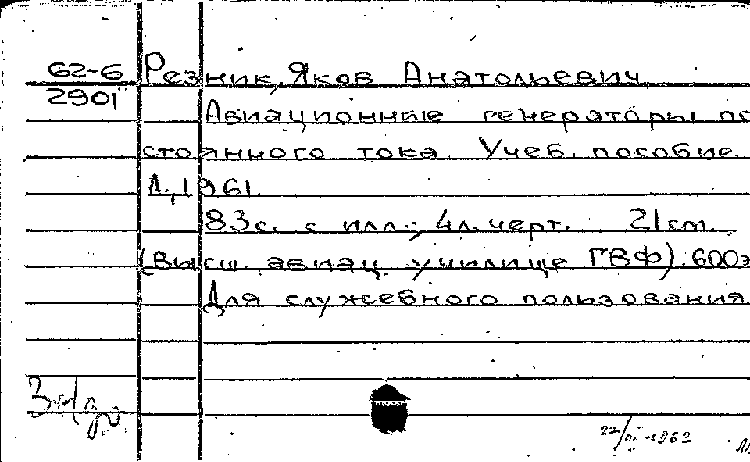 62-6
2901
Резник, Яков Анатольевич
Авиационные генераторы по
стоянного тока. Учеб. пособие.
Л., 1961.
83с. с илл.; 4л. черт. 21см.
(Высш. авиац. училище ГВФ). 600э
Для служебного пользования